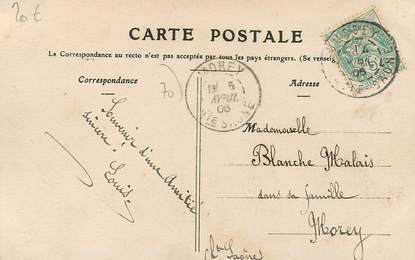 20€
CARTE POSTALE
La Correspondance au recto n'est pas acceptée par tous les pays étrangers. (Se renseign
Correspondance
Adresse
70
MOREY
AVRIL
06
Souvenir d'une Amitié
sincère!
Louise
Mademoiselle
Blanche Malais
dans sa famille
Morey
Hte Saône